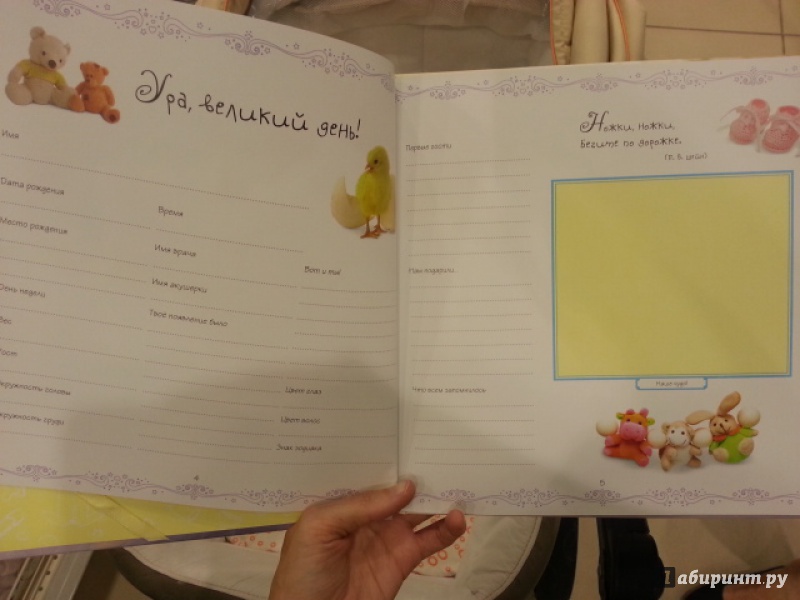 Ура, великий день!
Имя
Дата рождения
Время
Место рождения
Имя врача
Вот и ты!
День недели
Имя акушерки
Вес
Твоё появление было
Рост
Окружность головы
Цвет глаз
Окружность груди
Цвет волос
Знак зодиака
4
Первые гости
Нам подарили
Чем всем запомнилось
Ножки, ножки,
Бегите по дорожке.
5
Лабиринт.ру